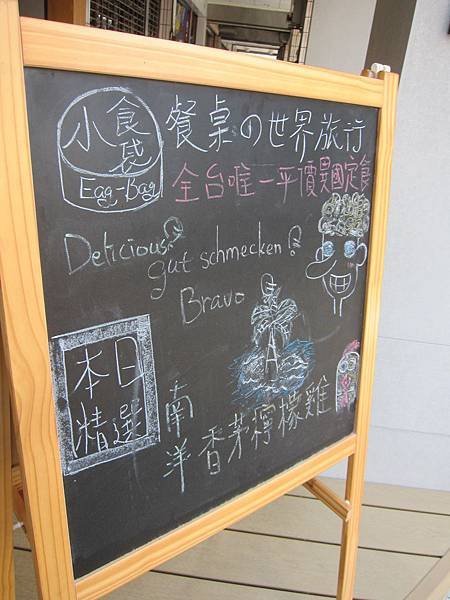 小食袋
Eag-Bag
餐桌の世界旅行
全台唯一平價異國定食
Delicious
gut schmecken
Bravo
本日
精選
南洋
香茅檸檬雞